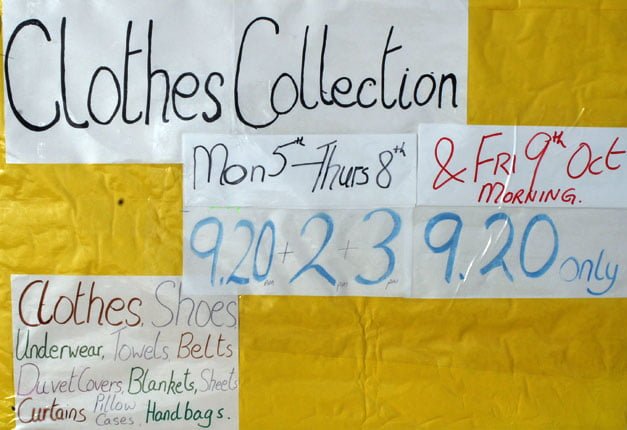 Clothes Collection
Mon 5th - Thurs 8th
& FRI 9th Oct
MORNING.
9.20am + 2pm + 3pm
9.20 only
Clothes, Shoes
Underwear, Towels, Belts
Duvet Covers, Blankets, Sheets
Curtains Pillow Cases, Handbags.